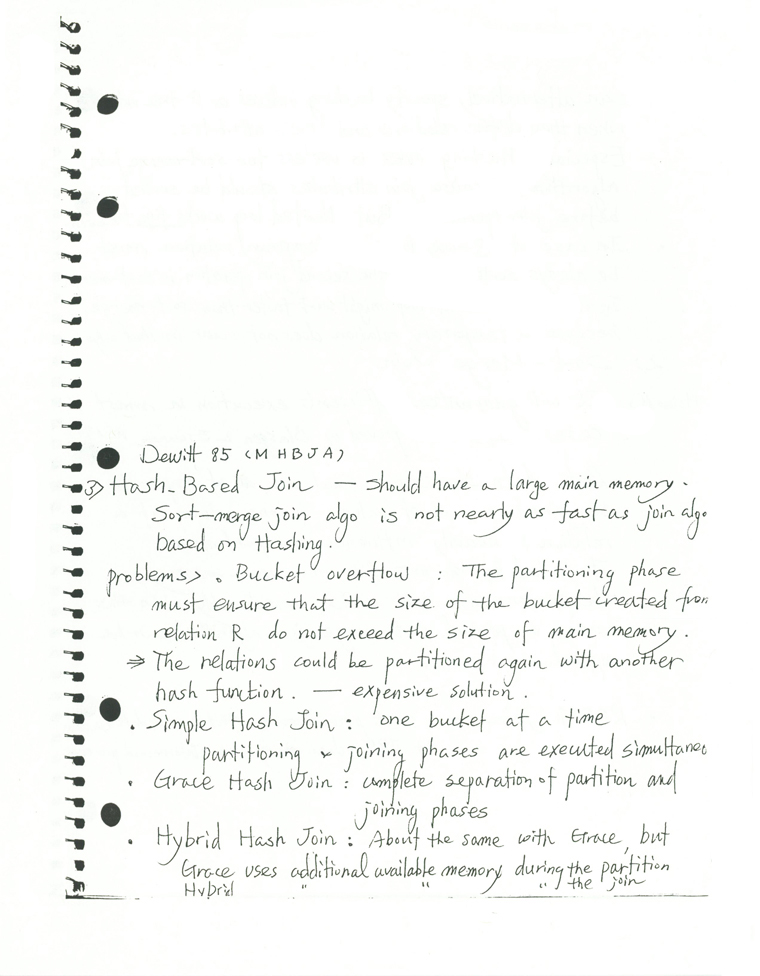 Dewitt 85 (MHBJA)
3> Hash-Based Join — should have a large main memory.
Sort-merge join algo is not nearly as fast as join algo
based on Hashing.
problems> . Bucket overflow : The partitioning phase
must ensure that the size of the bucket created from
relation R do not exceed the size of main memory.
⇒ The relations could be partitioned again with another
hash function. — expensive solution.
. Simple Hash Join : one bucket at a time
partitioning & joining phases are executed simultaneo
. Grace Hash Join : complete separation of partition and
joining phases
. Hybrid Hash Join : About the same with Grace, but
Grace uses additional available memory during the partition
Hybrid " " " the join